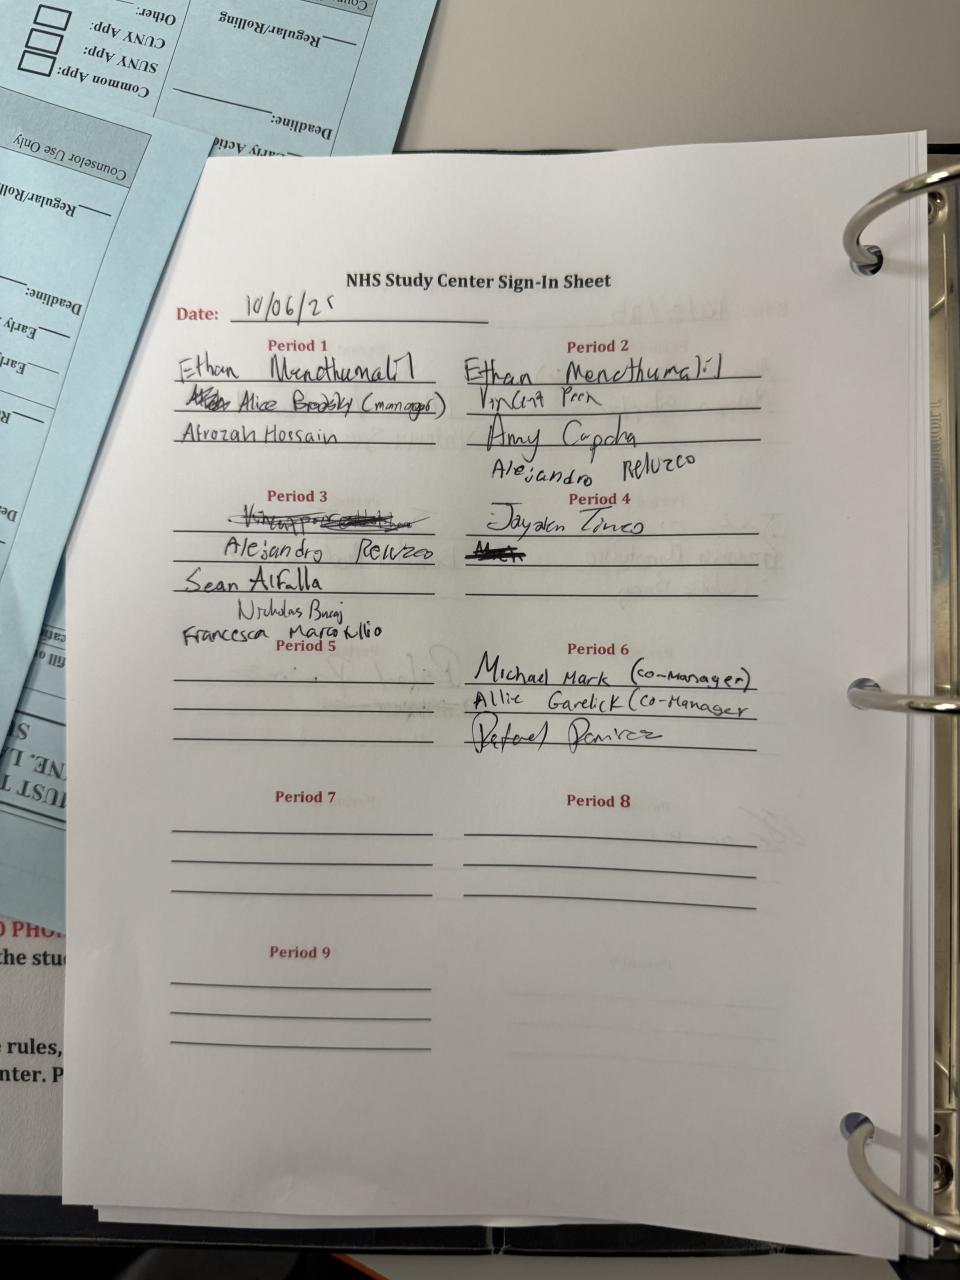 Other:
CUNY App:
SUNY App:
Common App:
Regular/Rolling
Deadline:
Early Acti
Counselor Use Only
Regular/Roll
Deadline:
Early
Ear
NHS Study Center Sign-In Sheet
Date: 10/06/25
Period 1
Ethan Menothumalil
Alice Brodsky (manager)
Afrozah Hossain
Period 2
Ethan Menothumalil
Vincent
Amy Capcha
Alejandro Reluzco
Period 3
Alejandro Reluzco
Sean Alfalla
Nicholas Bucaj
Francesca
Period 4
Jayden Tineo
Period 5
Period 6
Michael Mark (co-manager)
Allie Garelick (co-manager
Rafael Ramirez
Period 7
Period 8
Period 9
the stu
rules,
nter. P